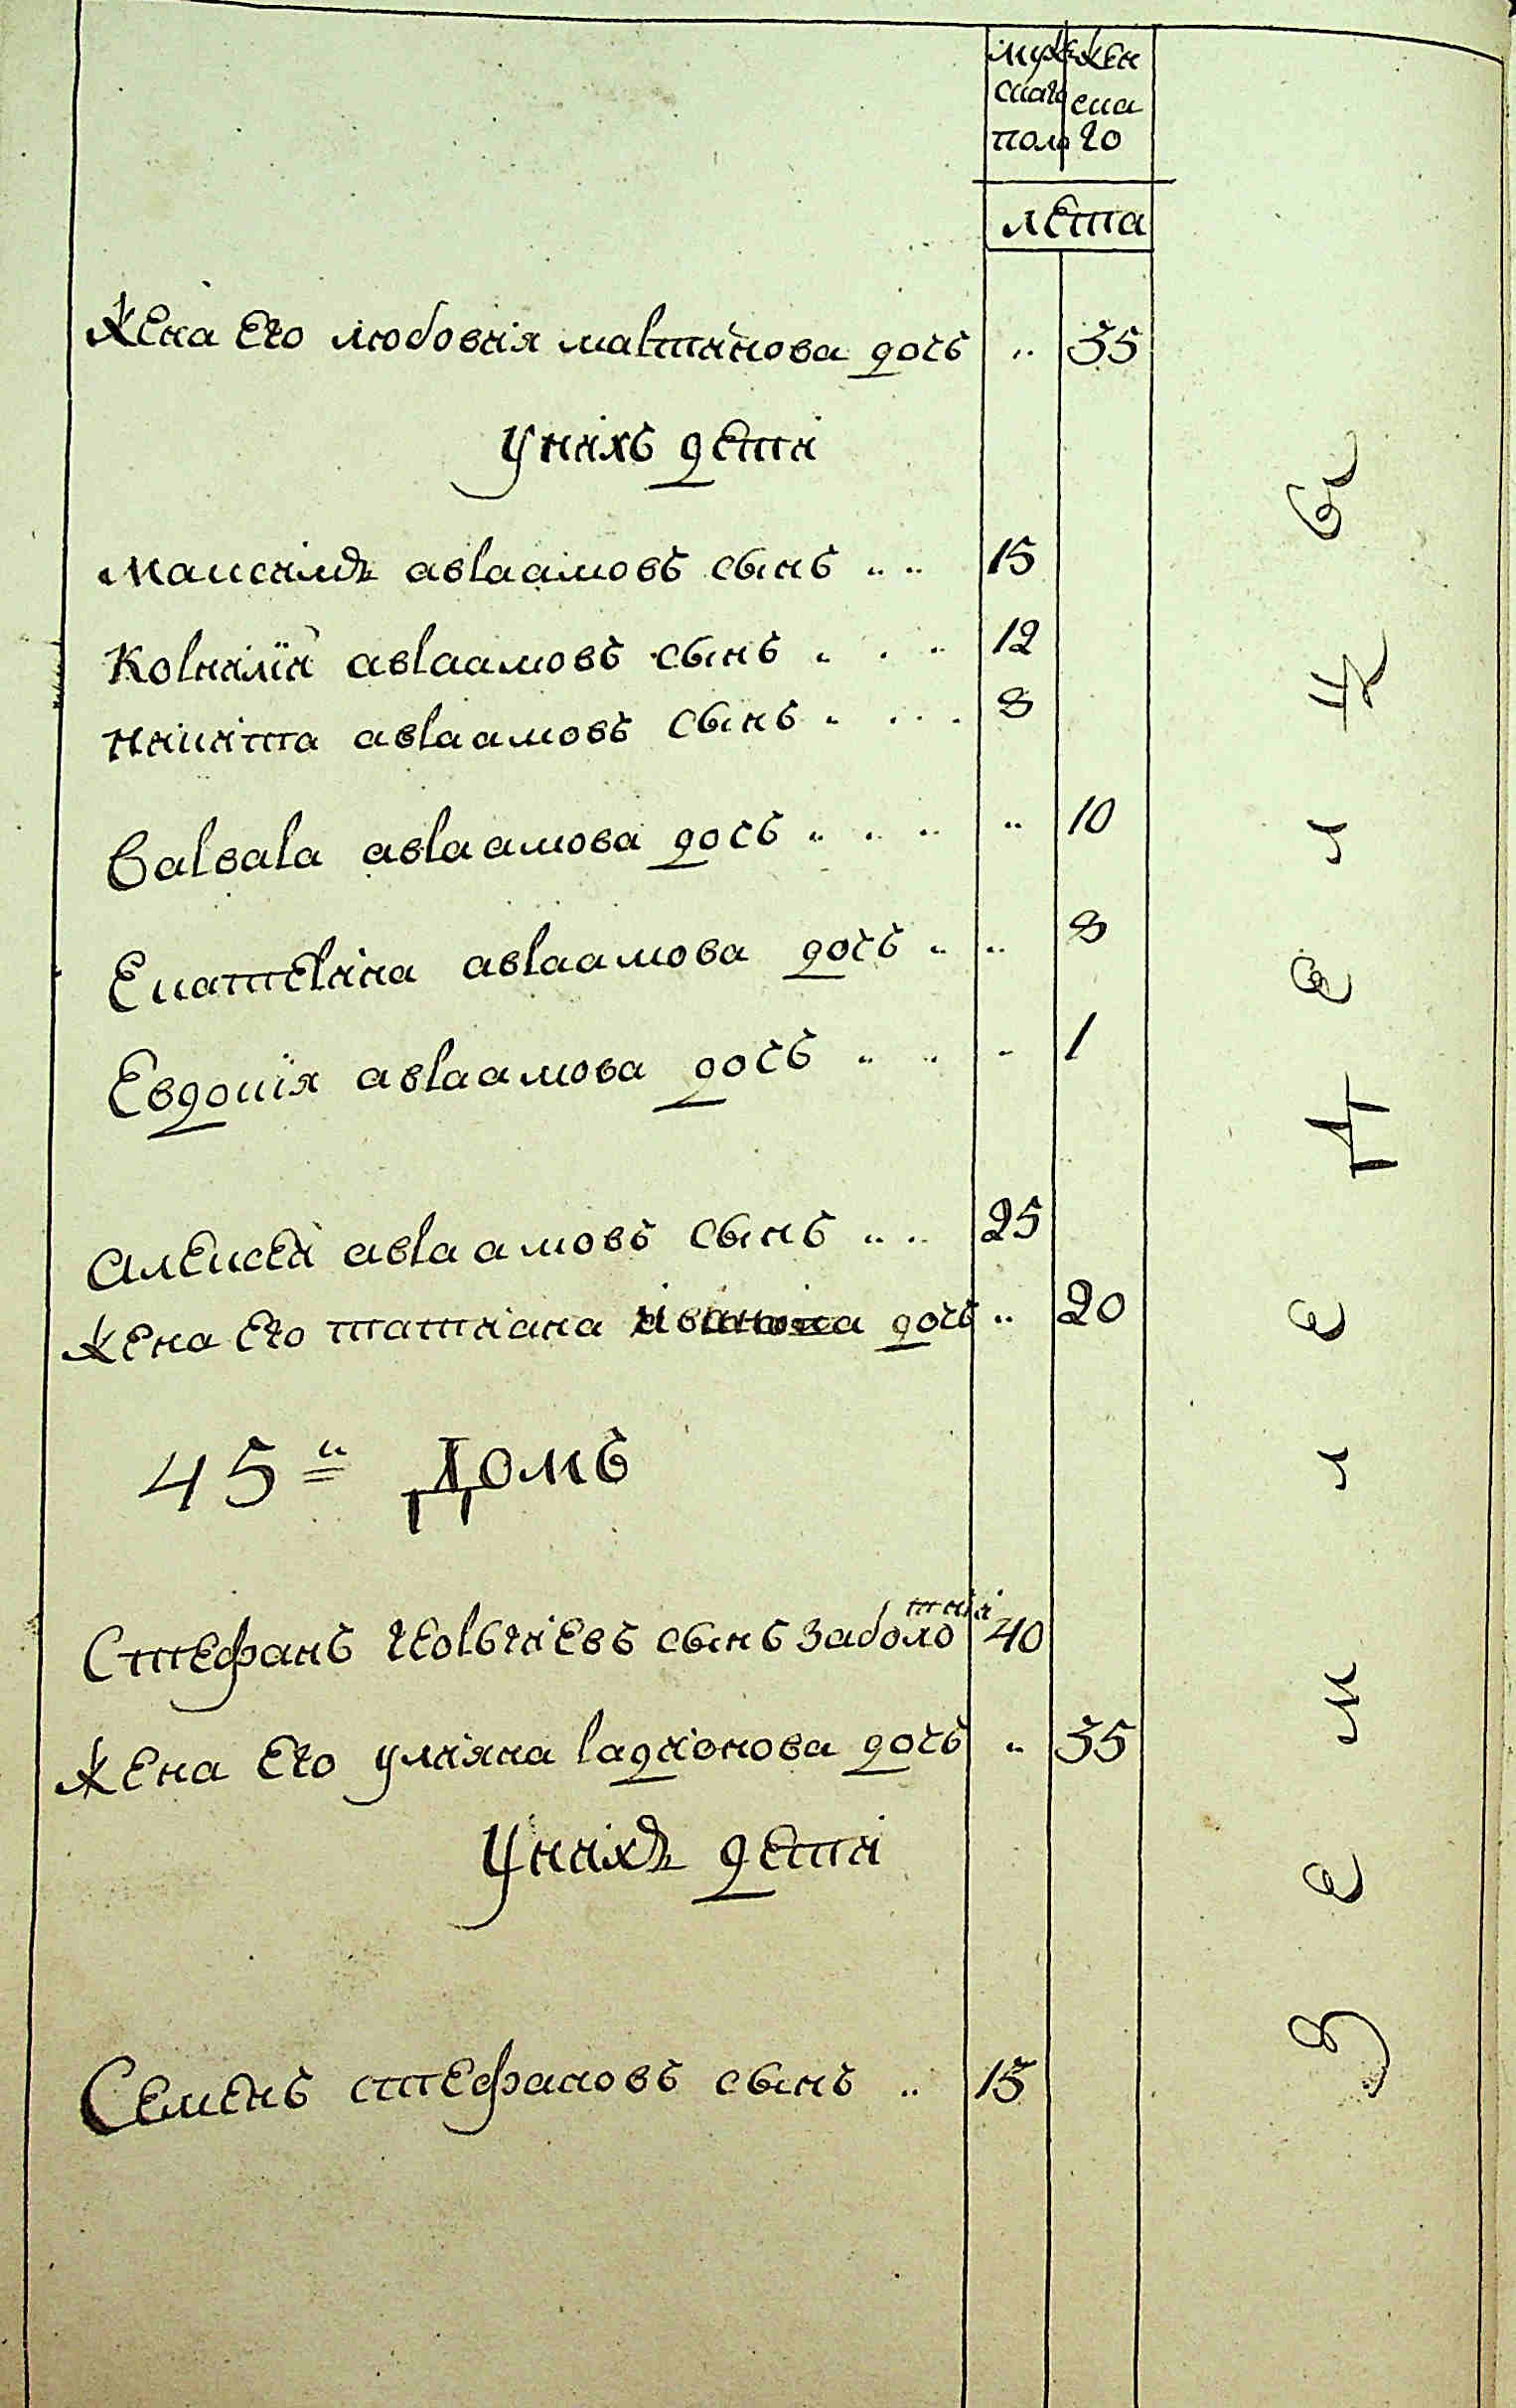 мужскаго полу
женскаго
лета
Жена его любовия мартинова дочь .. 35
У нихъ дети
Максимъ авраамовъ сынъ .. .. 15
Корнилий авраамовъ сынъ .. . .. 12
никита авраамовъ сынъ .. . . . 8
Варвара авраамова дочь .. .. .. .. 10
Екатерина авраамова дочь .. .. 8
Евдокия авраамова дочь .. .. .. 1
Алексей авраамовъ сынъ .. .. 25
Жена его татиана дочь .. 20
45й Домъ
Стефанъ георгиевъ сынъ Заболотний 40
Жена его улияна радионова дочь .. 35
У нихъ дети
Семенъ стефановъ сынъ .. 15
Земледелцы